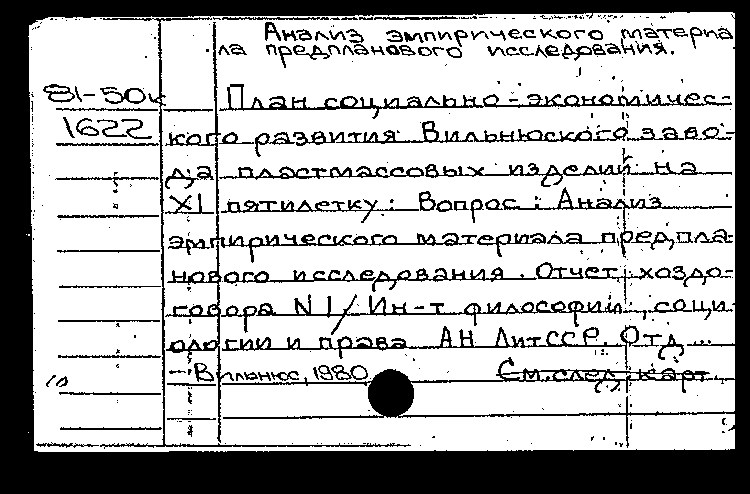 Анализ эмпирического материа
ла предпланового исследования.
81-50к
1622
План социально-экономичес-
кого развития Вильнюского заво-
да пластмассовых изделий на
XI пятилетку: Вопрос: Анализ
эмпирического материала предпла-
нового исследования. Отчет хоздо-
говора N 1/Ин-т философии, соци-
ологии и права АН ЛитССР. Отд...
—Вильнюс, 1980
См. след. карт.
10